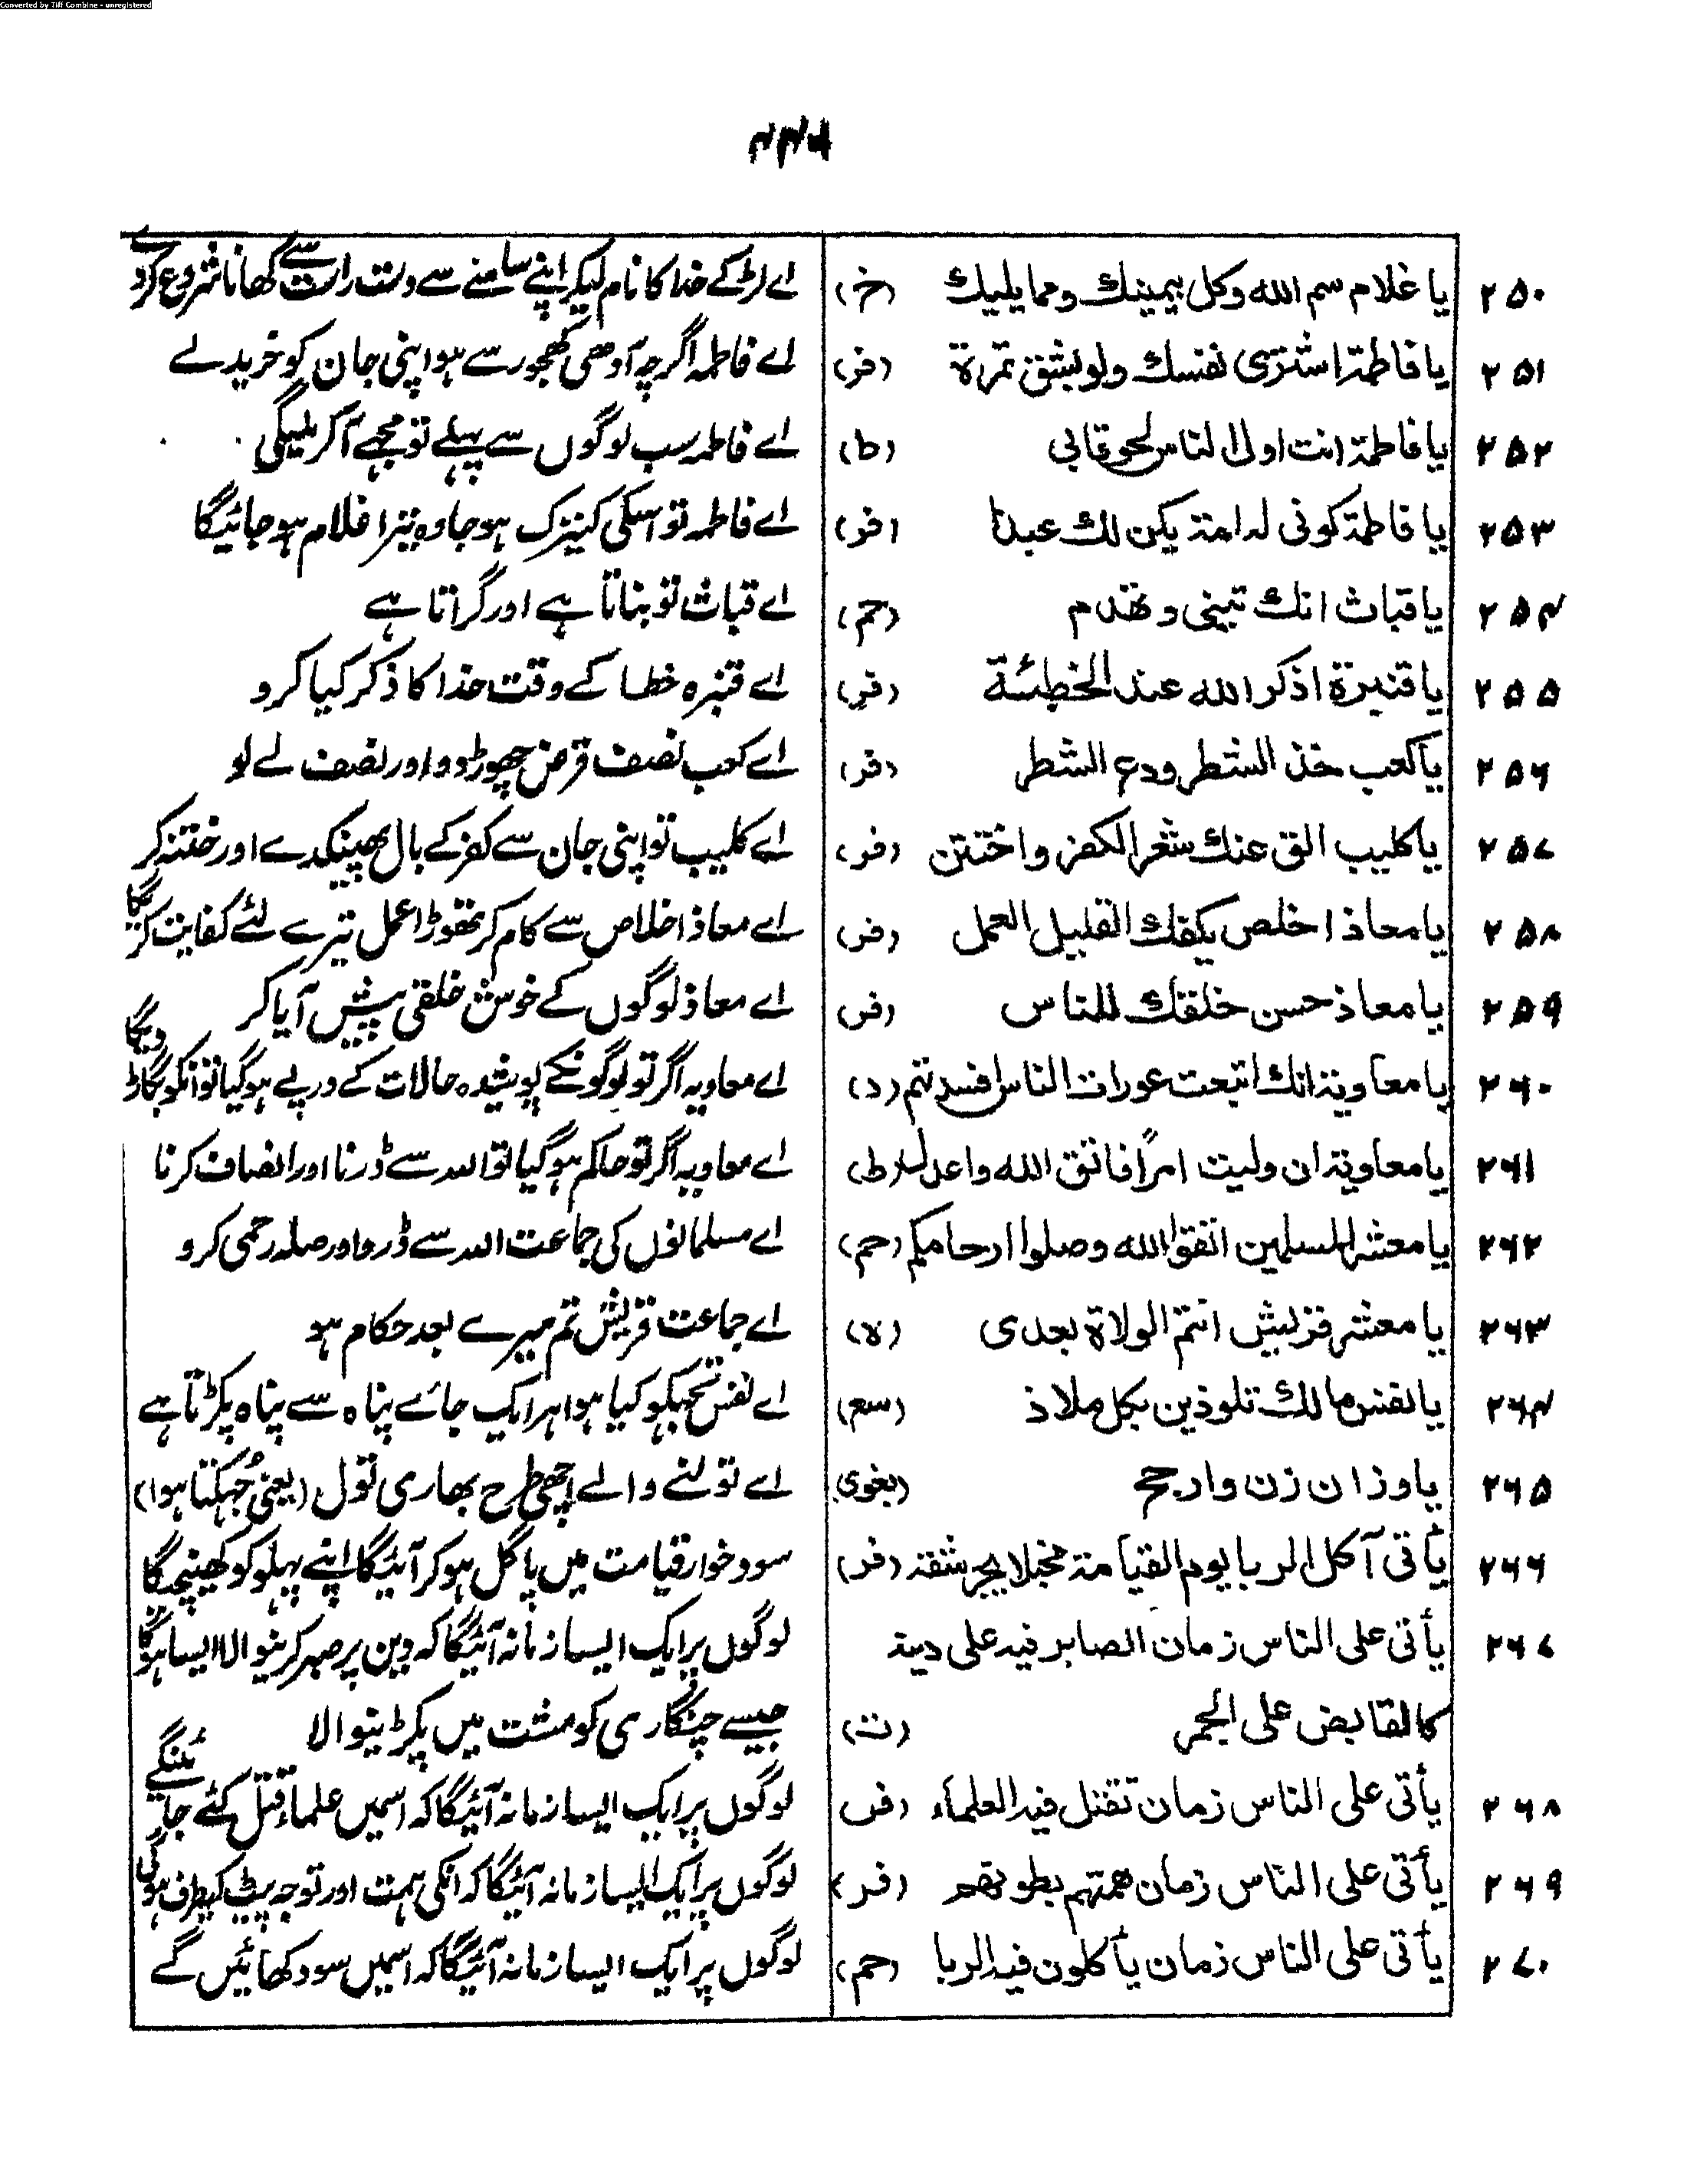 Converted by Tiff Combine - unregistered
۲۵۰ یا غلام سم الله وكل بيمينك ومما يليك (خ) اے لڑکے خدا کا نام لیکر اپنے سامنے سے دست راست سے کھانا شروع کردے
۲۵۱ یا فاطمة اشترى نفسك ولو بشق تمرة (فر) اے فاطمہ اگرچہ آدھی کھجور سے ہو اپنی جان کو خریدلے
۲۵۲ یا فاطمة انت اول الناس لحوقا بي (ط) اے فاطمہ سب لوگوں سے پہلے تو مجھے آکر ملیگی
۲۵۳ یا فاطمة كونى له امة يكن لك عبدا (فر) اے فاطمہ تو اسکی کنیزک ہو جا وہ تیرا غلام ہو جائیگا
۲۵۴ یا قباث انك تبنى وتهدم (حم) اے قباث تو بناتا ہے اور گراتا ہے
۲۵۵ یا قنبرة اذكر الله عند الخطيئة (فر) اے قنبرہ خطا کے وقت خدا کا ذکر کیا کرو
۲۵۶ یا کعب خذ الشطر ودع الشطر (فر) اے کعب نصف قرض چھوڑ دو اور نصف لے لو
۲۵۷ یا کلیب الق عنك شعر الكفر واختتن (فر) اے کلیب تو اپنی جان سے کفر کے بال پھینکدے اور ختنہ کر
۲۵۸ یا معاذ اخلص يكفك القليل العمل (فر) اے معاذ اخلاص سے کام کر تھوڑا عمل تیرے لئے کفایت کریگا
۲۵۹ یا معاذ حسن خلقك للناس (فر) اے معاذ لوگوں کے خوش خلقی پیش آیا کر
۲۶۰ یا معاوية انك اتبعت عورات الناس افسدتهم (د) اے معاویہ اگر تو لوگونکے پوشیدہ حالات کے درپے ہو گیا تو انکو بگاڑ دیگا
۲۶۱ یا معاوية ان وليت امرًا فاتق الله واعدل (ط) اے معاویہ اگر تو حاکم ہو گیا تو اللہ سے ڈرنا اور انصاف کرنا
۲۶۲ یا معشر المسلمين اتقوا الله وصلوا ارحامكم (حم) اے مسلمانوں کی جماعت اللہ سے ڈرو اور صلہ رحمی کرو
۲۶۳ یا معشر قريش انتم الولاة بعدى (ہ) اے جماعت قریش تم میرے بعد حکام ہو
۲۶۴ یا نفس مالك تلوذين بكل ملاذ (سع) اے نفس تجہکو کیا ہوا ہر ایک جائے پناہ سے پناہ پکڑتا ہے
۲۶۵ یا وزان زن وارجح (بغوی) اے تولنے والے اچھی طرح بھاری تول (یعنی جُہکتا ہوا)
۲۶۶ يأتى آكل الربا يوم القيامة مخبلا يجر شقه (فر) سود خوار قیامت میں پاگل ہو کر آئیگا اپنے پہلو کو کھینچیگا
۲۶۷ يأتى على الناس زمان الصابر فيه على دينه لوگوں پر ایک ایسا زمانہ آئیگا کہ دین پر صبر کرنیوالا ایسا ہوگا
كالقابض على الجمر (ت) جیسے چنگاری کو مشت میں پکڑنیوالا
۲۶۸ يأتى على الناس زمان تقتل فيه العلماء (فر) لوگوں پر ایک ایسا زمانہ آئیگا کہ اسمیں علماء قتل کئے جائینگے
۲۶۹ يأتى على الناس زمان همتهم بطونهم (فر) لوگوں پر ایک ایسا زمانہ آئیگا کہ انکی ہمت اور توجہ پیٹ کیطرف ہوگی
۲۷۰ يأتى على الناس زمان يأكلون فيه الربا (حم) لوگوں پر ایک ایسا زمانہ آئیگا کہ اسمیں سود کھائیں گے